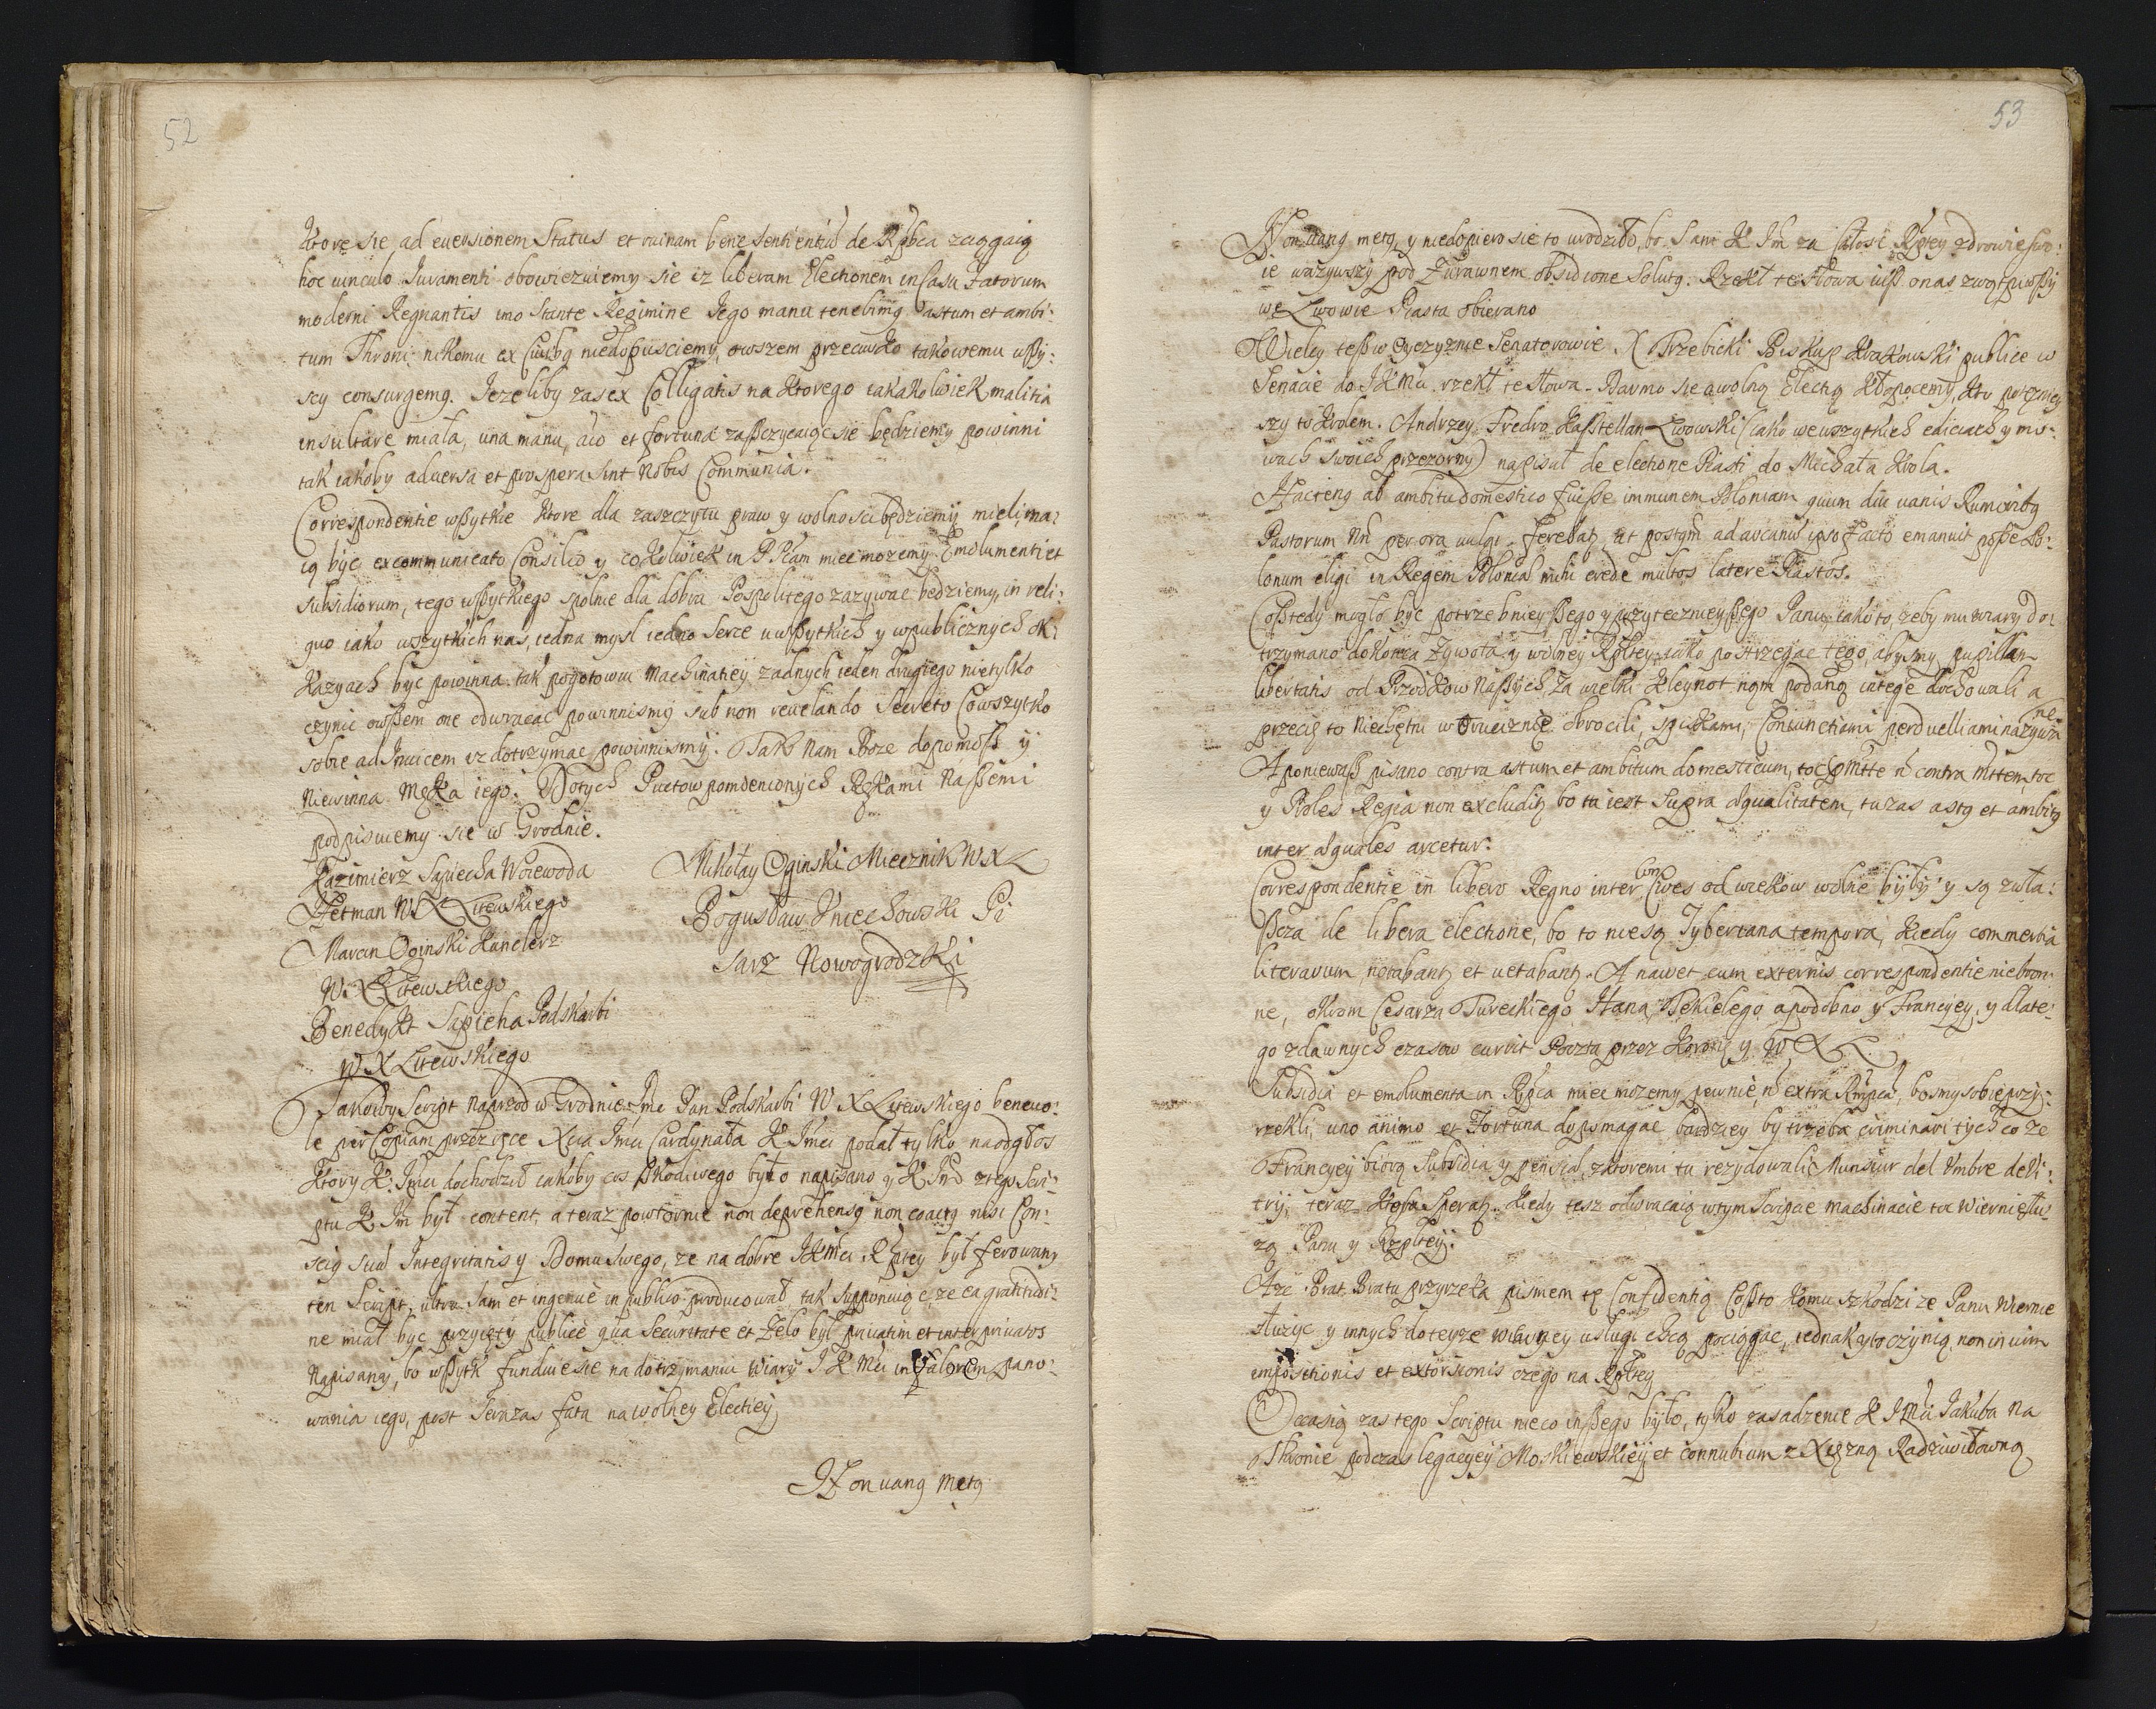 52
Ktore sie ad euersionem Status et ruinam bene sentientiũ de Rpbca zciągaią
hoc vinculo Juramenti obowiezuiemy sie iz liberam Electionem in Casu Fatorum
moderni Regnantis imo Stante Regimine Jego manu tenebimg astum et ambi:
tum Throni nikomu ex Ciuibg niedopusciemy, owszem przeciwko takowemu wszy:
scy consurgemg. Jezeliby zas ex Colligatis na ktorego iakakolwiek malitia
insultare miała, una manu, aĩo et fortuna zaszczycaiąc sie będziemy powinni
tak iakoby aduersa et prospera sint Nobis Communia.
Correspondentie wszytkie ktore dla zaszczytu praw y wolnosci będziemy mieli, ma:
ią byc excommunicato Consilio y cokolwiek in R Pcam miec mozemy Emolumenti et
subsidiorum, tego wszytkiego spolnie dla dobra Pospolitego zazywac będziemy, in reli:
quo iako wszytkich nas, iedna mysl iedno Serce u wszytkich y w publicznych ok:
kazyach byc powinna tak pogotowiu Machinatiey zadnych ieden drugiego nie tylko
czynic owszem one odwracac powinnismy sub non reuelando Secreto Co wszytko
sobie ad Inuicem iz dotrzymac powinnismy. Tak nam Boze dopomosz y
Niewinna Męka iego. Do tych Puctow pomienionych Rękami Naszemi
podpisuiemy sie w Grodnie.
Kazimierz Sapiecha Woiewoda
Hetman W X Litewskiego
Marcin Oginski Kanclerz
W. X Litewskiego
Benedykt Sapieha Podskarbi
W X Litewskiego
Mikołay Oginski Miecznik W X L
Bogusław Kniechowski Pi
sarz Nowogrodzki
Takowy Script naprzod w Grodnie Jme Pan Podskarbi W X Litewskiego beneuo:
le per Copiam przez ręce Xcia Jmci Cardynała K Jmci podał tylko na odgłos
ktory K. Jmci dochodził iakoby cos szkodliwego było napisano y K Jmć z tego Scri:
ptu K Jm był content, a teraz powtornie non deprehensg non coactg nisi Con:
scig suæ Integritatis y Domu swego, ze na dobre JKmci Rptey był ferowany
ten Script, ultro Sam et ingenuè in publico producował, tak supponuiąc, ze ea gratitudi:
ne miał byc przyięty publicè qua Securitate et Zelo był priuatim et inter priuatos
Napisany, bo wszytk funduie sie na dotrzymaniu Wiary J K Mci in Valorem pano:
wania iego, post Sera zas fata na wolney Electiey,
Non uang metg
53
Non uang metg, y niedopiero sie to urodziło, bo Sam K Jm za całosc Rptey zdrowie swo:
ie wazywszy pod Zurawnem obsidione Solutg. Rzekł te słowa iusz o nas zwątpiwszy
we Lwowie Piasta obierano
Wielcy tesz w Oyczyznie Senatorowie X Trzebicki Biskup Krakowski publice w
Senacie do JKMci rzekł te słowa. Darmo sie o wolną Electią kłopocemy, kto potęzniey
szy to Krolem. Andrzey Fredro Kasztellan Lwowski (iako we wszytkich edictach y mo:
wach swoich przezorny) napisał de electione Piasti do Michała Krola.
Hacteng ab ambitu domestico fuisse immunem Poloniam quum diu uanis Rumoribg
Piastorum Nñ per ora uulgi ferebatz, at postqm ad arcanũ ipso Facto emanuit posse Po:
lonum eligi in Regem Poloniæ mihi crede multos latere Piastos.
Cosz tedy mogło byc potrzebnieyszego y uzytecznieyszego Panu, iako to, zeby mu wiary do:
trzymano do konca Zywota y wolney Rpltey, iako postrzegac tego, abysmy pupillam
libertatis od Przodkow Naszych, za wielki Kleynot nąm podang integrè dochowali a
przecię to Niechętni w truciznie obrocili, spiskami, coniunctiami perduelliami nazywa
ne.
A poniewasz pisano contra astum et ambitum domesticum, toc p Mtte ñ contra Mttem, toc
y Proles Regia non excluditz bo ta iest Supra æqualitatem, tu zas astg et ambitg
inter æquales arcetur.
Correspondentie in libero Regno inter Con Ciues od wiekow wolne były y są zwła:
szcza de libera electione, bo to nie są Tyberiana tempora, kiedy commercia
literarum notabantz et uetabantz. A nawet cum externis correspondentie niebron:
ne, okrom Cesarza Tureckiego Hana, Tekielego a podobno y Francyey, y dlate:
go z dawnych czasow currit Poczta przez Koronę y W X L.
Subsidia et emolumenta in Rpca miec mozemy pewnie, ñ extra Rmpcã, bosmy sobie przy:
rzekli, uno animo et Fortuna dopomagac bardziey by trzeba criminari tych co ze
Francyey biorą Subsidia y pensiæ, z ktoremi tu rezydowali Munsiur del Umbre de Vi:
try, teraz. Kiedy tesz odwracaią w tym Scripcie machinacie toc Wiernie słu:
zą Panu y Rzpltey.
A ze Brat Bratu przyrzeka pismem tę Confidentią Cosz to komu szkodzi ze Panu Wiernie
słuzyc y innych do teyze wierney usługi chcą pociągac, iednak y to czynią, non in uim
impositionis et extorsionis czego na Rpltey
Occasią zas tego Scriptu nieco inszego było, tylko zasadzenie K JMci Jakuba na
Thronie podczas legacyey Moskiewskiey et connubium z Xięzną Radziwiłowną